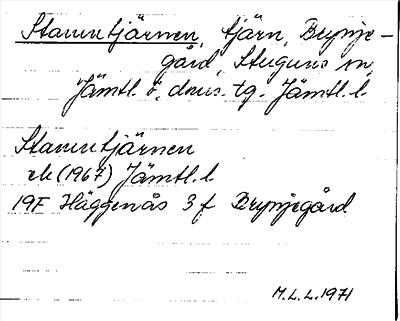 Stamntjärnen, tjärn, Brynje-
gård, Stuguns sn,
Jämtl. ö. doms. tg. Jämtl. l.
Stamntjärnen
ek (1967) Jämtl. l
19F Häggenås 3 f Brynjegård
M.L.L. 1971